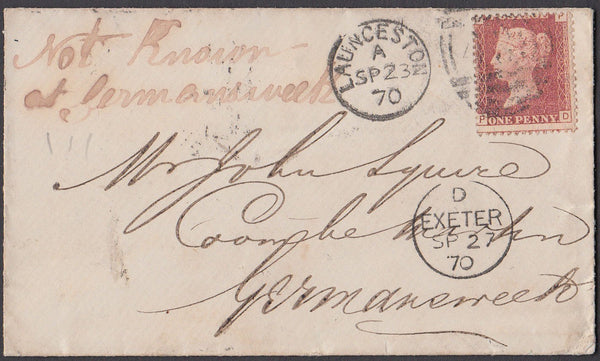 Not Known
at Germansweek
LAUNCESTON
A
SP 23
70
P D
ONE PENNY
Mr John Squire
Coombe
Germansweek
D
EXETER
SP 27
70